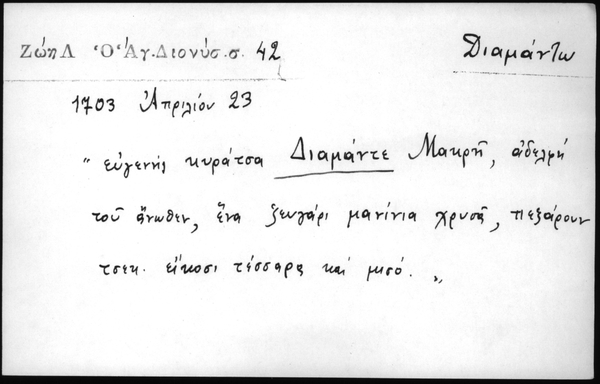 Ζώη Λ Ὁ Ἅγ. Διονύσ. σ. 42 Διαμάντω
1703 Ἀπριλίου 23
„ εὐγενής κυράτσα Διαμάντε Μακρῆ, ἀδελφή
τοῦ ἄνωθεν, ἕνα ζευγάρι μανίνια χρυσᾶ, πεζάρουν
τσεκ. εἴκοσι τέσσαρα καί μισό. „